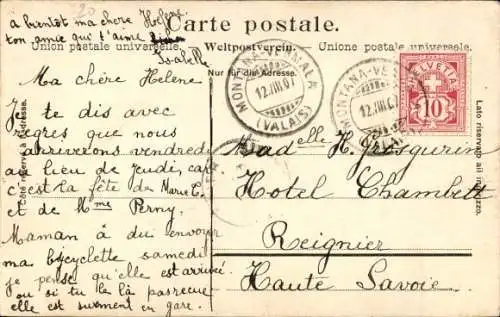 à bientôt ma chère Helene
ton amie qui t'aime
Isabelle
Carte postale.
Union postale universelle. Weltpostverein. Unione postale universale.
Nur für die Adresse.
Côté réservé à l'adresse.
Lato riservato all'indirizzo.
MONTANA-VERMALA
12.III.07
(VALAIS)
MONTANA-VE
12.III.0
HELVETIA
10
Ma chère Helene
Je te dis avec
regres que nous
arriverons vendredi
au lieu de jeudi, car
c'est la fête de Marie T.
et de Mme Perny.
Maman à du envoyer
ma bicyclette samedi
je pense qu'elle est arrivée
ou si tu la là pas recue
elle est surement en gare.
Mademelle H.
Hotel Chambett
Reignier
Haute Savoie